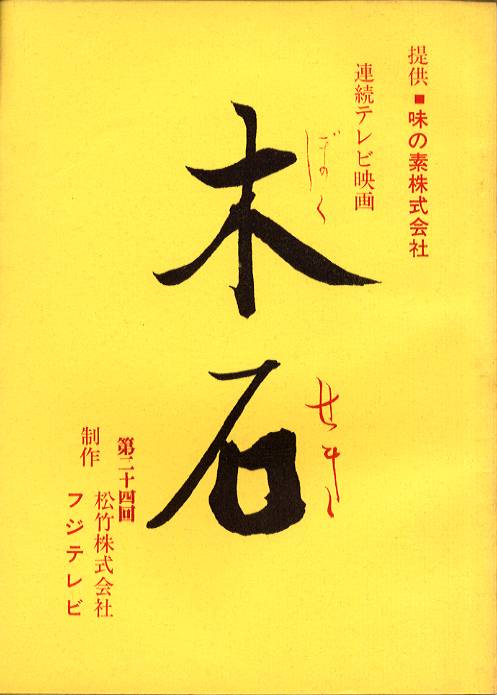 提供■味の素株式会社
連続テレビ映画
ぼく
せき
木石
第二十四回
制作 松竹株式会社
フジテレビ